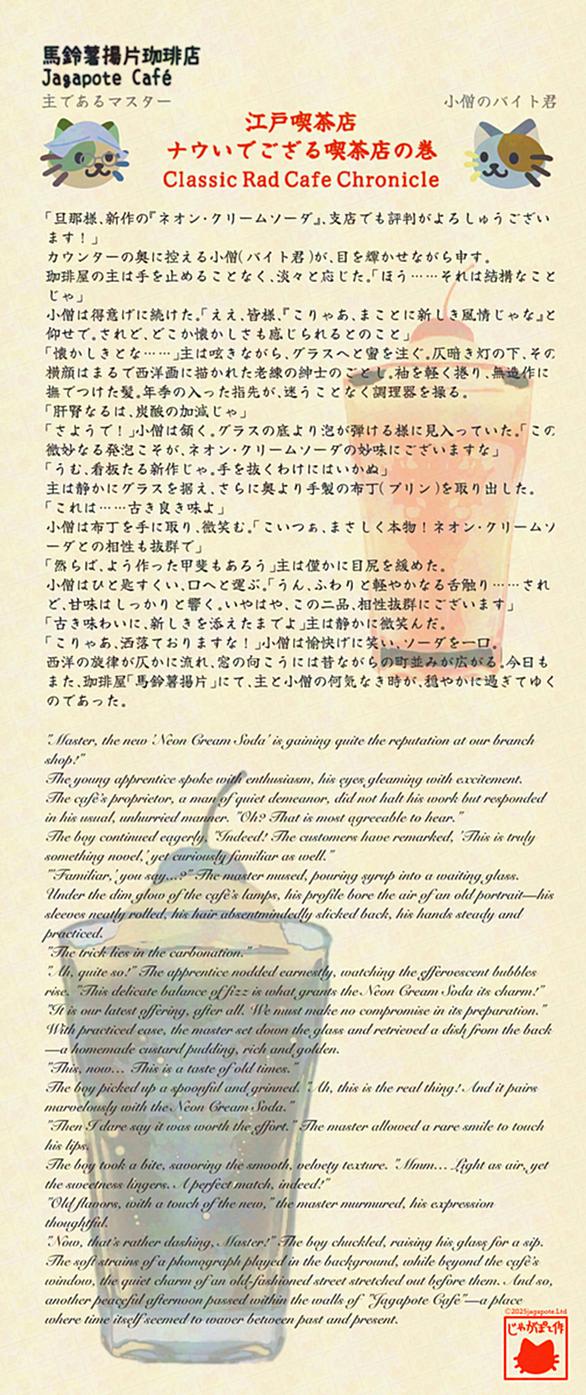 馬鈴薯揚片珈琲店
Jagapote Café
主であるマスター
小僧のバイト君
江戸喫茶店
ナウいでござる喫茶店の巻
Classic Rad Cafe Chronicle
「旦那様、新作の『ネオン・クリームソーダ』、支店でも評判がよろしゅうござい
ます!」
カウンターの奥に控える小僧(バイト君)が、目を輝かせながら申す。
珈琲屋の主は手を止めることなく、淡々と応じた。「ほう……それは結構なこと
じゃ」
小僧は得意げに続けた。「ええ、皆様、『こりゃあ、まことに新しき風情じゃな』と
仰せで。されど、どこか懐かしさも感じられるとのこと」
「懐かしきとな……」主は呟きながら、グラスへと蜜を注ぐ。仄暗き灯の下、その
横顔はまるで西洋画に描かれた老練の紳士のごとし。袖を軽く捲り、無造作に
撫でつけた髪。年季の入った指先が、迷うことなく調理器を操る。
「肝腎なるは、炭酸の加減じゃ」
「さようで!」小僧は頷く。グラスの底より泡が弾ける様に見入っていた。「この
微妙なる発泡こそが、ネオン・クリームソーダの妙味にございますな」
「うむ、看板たる新作じゃ。手を抜くわけにはいかぬ」
主は静かにグラスを据え、さらに奥より手製の布丁(プリン)を取り出した。
「これは……古き良き味よ」
小僧は布丁を手に取り、微笑む。「こいつぁ、まさしく本物!ネオン・クリームソ
ーダとの相性も抜群で」
「然らば、よう作った甲斐もあろう」主は僅かに目尻を緩めた。
小僧はひと匙すくい、口へと運ぶ。「うん、ふわりと軽やかなる舌触り……され
ど、甘味はしっかりと響く。いやはや、この二品、相性抜群にございます」
「古き味わいに、新しきを添えたまでよ」主は静かに微笑んだ。
「こりゃあ、洒落ておりますな!」小僧は愉快げに笑い、ソーダを一口。
西洋の旋律が仄かに流れ、窓の向こうには昔ながらの町並みが広がる。今日も
また、珈琲屋「馬鈴薯揚片」にて、主と小僧の何気なき時が、穏やかに過ぎてゆく
のであった。
"Master, the new 'Neon Cream Soda' is gaining quite the reputation at our branch
shop!"
The young apprentice spoke with enthusiasm, his eyes gleaming with excitement.
The café's proprietor, a man of quiet demeanor, did not halt his work but responded
in his usual, unhurried manner. "Oh? That is most agreeable to hear."
The boy continued eagerly. "Indeed! The customers have remarked, 'This is truly
something novel,' yet curiously familiar as well."
"'Familiar,' you say...?" The master mused, pouring syrup into a waiting glass.
Under the dim glow of the café's lamps, his profile bore the air of an old portrait—his
sleeves neatly rolled, his hair absentmindedly slicked back, his hands steady and
practiced.
"The trick lies in the carbonation."
"Ah, quite so!" The apprentice nodded earnestly, watching the effervescent bubbles
rise. "This delicate balance of fizz is what grants the Neon Cream Soda its charm!"
"It is our latest offering, after all. We must make no compromise in its preparation."
With practiced ease, the master set down the glass and retrieved a dish from the back
—a homemade custard pudding, rich and golden.
"This, now... This is a taste of old times."
The boy picked up a spoonful and grinned. "Ah, this is the real thing! And it pairs
marvelously with the Neon Cream Soda."
"Then I dare say it was worth the effort." The master allowed a rare smile to touch
his lips.
The boy took a bite, savoring the smooth, velvety texture. "Mmm... Light as air, yet
the sweetness lingers. A perfect match, indeed!"
"Old flavors, with a touch of the new," the master murmured, his expression
thoughtful.
"Now, that's rather dashing, Master!" The boy chuckled, raising his glass for a sip.
The soft strains of a phonograph played in the background, while beyond the café's
window, the quiet charm of an old-fashioned street stretched out before them. And so,
another peaceful afternoon passed within the walls of "Jagapote Café"—a place
where time itself seemed to waver between past and present.
©2025jagapote.Ltd
じゃがぽて作